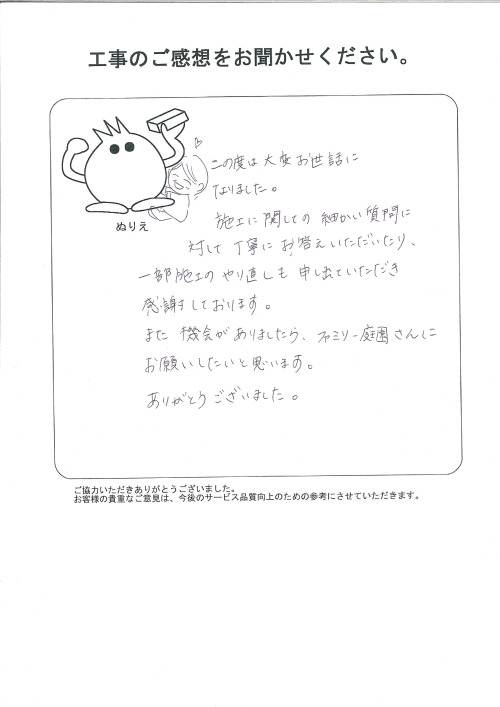 工事のご感想をお聞かせください。
ぬりえ
この度は大変お世話に
なりました。
施工に関しての細かい質問に
対して丁寧にお答えいただいたり、
一部施工のやり直しも申し出ていただき
感謝しております。
また機会がありましたら、ファミリー庭園さんに
お願いしたいと思います。
ありがとうございました。
ご協力いただきありがとうございました。
お客様の貴重なご意見は、今後のサービス品質向上のための参考にさせていただきます。